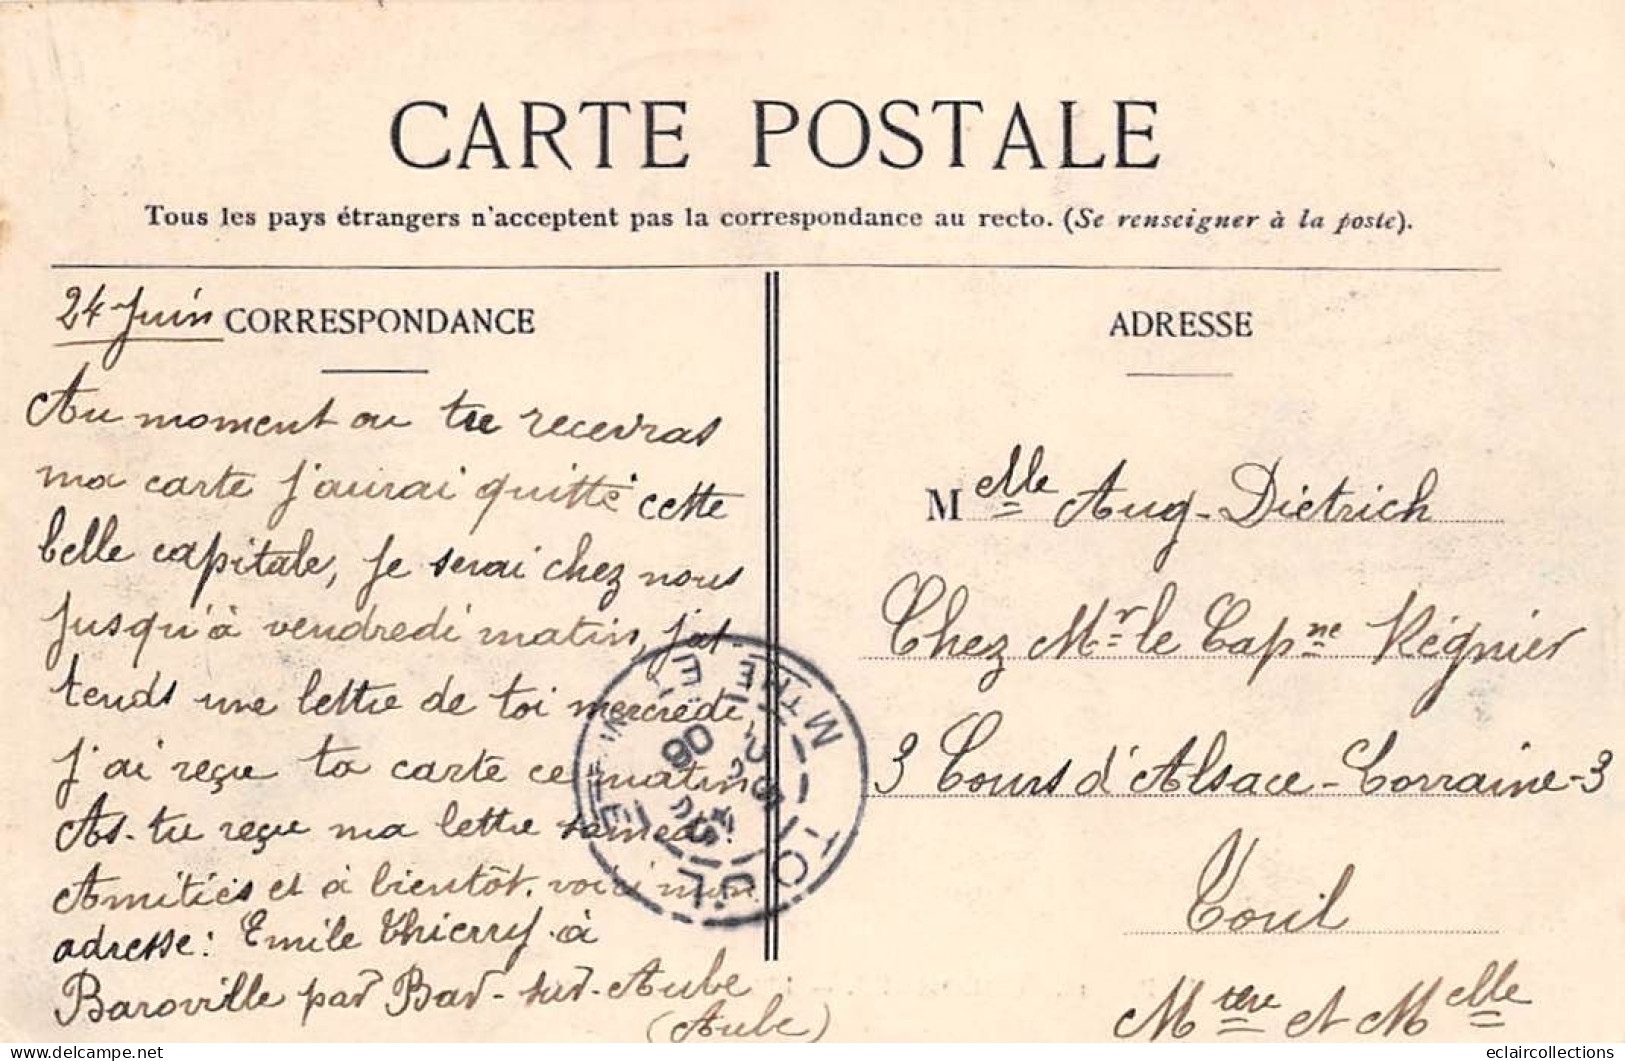 CARTE POSTALE
Tous les pays étrangers n'acceptent pas la correspondance au recto. (Se renseigner à la poste).
24 Juin CORRESPONDANCE
Au moment ou tu recevras
ma carte j'aurai quitté cette
belle capitale, je serai chez nous
jusqu'à vendredi matin, j'at-
tends une lettre de toi mercredi,
j'ai reçu ta carte ce matin
As-tu reçu ma lettre samedi.
Amitiés et à bientôt. voici mon
adresse: Emile Thierry à
Baroville par Bar-sur-Aube
(Aube)
ADRESSE
Melle Aug-Dietrich
Chez Mr le Capne Régnier
3 Cours d'Alsace-Lorraine-3
Toul
Mtre et Melle
TOUL
MTHE-ET-M
06
eclaircollections